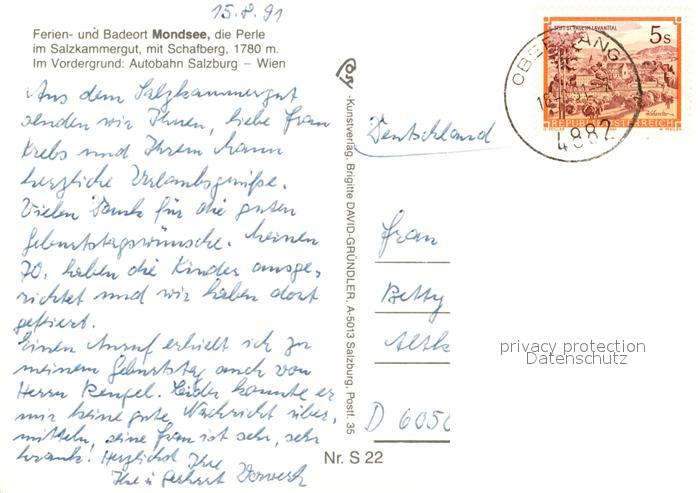 15.8.91
Ferien- und Badeort Mondsee, die Perle
im Salzkammergut, mit Schafberg, 1780 m.
Im Vordergrund: Autobahn Salzburg – Wien
Aus dem Salzkammergut
senden wir Ihnen, liebe Frau
Krebs und Ihrem Mann
herzliche Urlaubsgrüße.
Vielen Dank für die guten
Geburtstagswünsche. Meinen
70. haben die Kinder ausge-
richtet und wir haben dort
gefeiert.
Einen Anruf erhielt ich zu
meinem Geburtstag auch von
Herrn Rengel. Leider konnte er
mir keine gute Nachricht über-
mitteln, seine Frau ist sehr, sehr
krank! Herzlichst Ihre
Ilse u. Gerhart
Kunstverlag, Brigitte DAVID-GRÜNDLER, A-5013 Salzburg, Postf. 35
Nr. S 22
Deutschland
Frau
Betty
Altk
D 6050
STIFT ST. PAUL IM LAVANTTAL
5 s
REPUBLIK ÖSTERREICH
OBERWANG
4882
privacy protection
Datenschutz